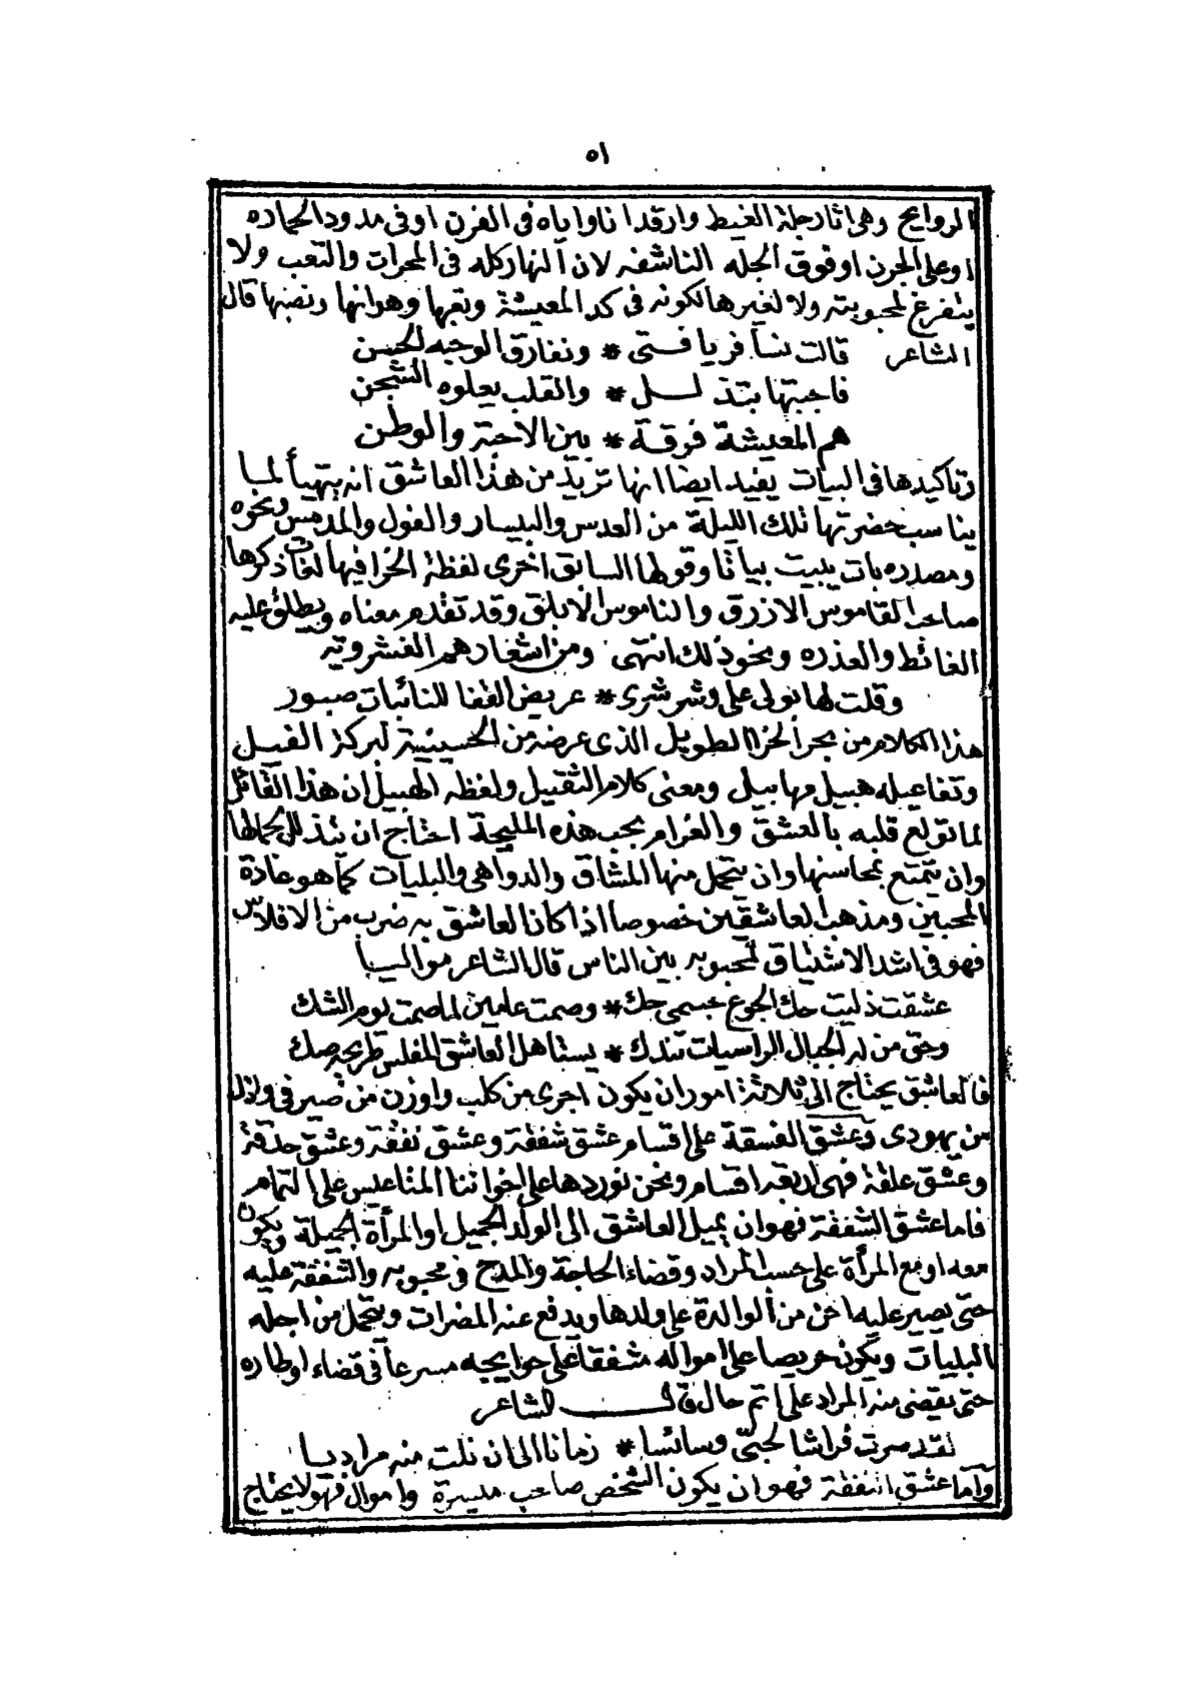 ٥١
الروايح وهى اثار جلة الغيط وارقد انا واياه فى الفرن او فى مدود الحماره
او على الجرن او فوق الجله الناشفه لان النهار كله فى المحرات والتعب ولا
يتفرغ لمحبوبته ولا لغيرها لكونه فى كد المعيشة وتعبها وهوانها ونصبها قال
الشاعر قالت نسافر يا فتى * ونفارق الوجه الحسن
فاجبتها بتذلل * والقلب يعلوه الشجن
هم المعيشة فرقة * بين الاحبة والوطن
وتاكيدها فى البيات يفيد ايضا انها تريد من هذا العاشق انه يتهيأ لما
يناسب حضرتها تلك الليلة من العدس والبيسار والفول والمدمس ونحوه
ومصدره بات يبيت بياتا وقولها السابق اخرى لفظة الخرا فيها لغات ذكرها
صاحب القاموس الازرق والناموس الابلق وقد تقدم معناه ويطلق عليه
الغائط والعذره ونحو ذلك انتهى ومن اشعارهم الفشرويه
وقلت لها بولى على وشرشرى * عريض القفا للنائبات صبور
هذا الكلام من بحر الخرا الطويل الذى عرضه من الحسينية لبركة الفيل
وتفاعيله هبيل مهابيلى ومعنى كلام الثقيل ولفظه الهبيل ان هذا القائل
لما تولع قلبه بالعشق والغرام بحب هذه المليحة احتاج ان يتذلل لجمالها
وان يتمتع بمحاسنها وان يتحمل منها المشاق والدواهى والبليات كما هو عادة
المحبين ومذهب العاشقين خصوصا اذا كان العاشق به ضرب من الافلاس
فهو فى اشد الاشتياق لمحبوبه بين الناس قال الشاعر مواليا
عشقت ذليت حك الجوع جسمى حك * وصمت عامين لما صمت يوم الشك
وحق من له الجبال الراسيات تندك * يستاهل العاشق المفلس طريحه صك
فالعاشق يحتاج الى ثلاثة امور ان يكون اجرى من كلب واوزن من صيرفى واذل
من يهودى وعشق الفسقة على اقسام عشق شفقة وعشق نفقة وعشق حدقة
وعشق علقة فهى اربعه اقسام ونحن نوردها على اخواننا المناعيس على التمام
فاما عشق الشفقة فهو ان يميل العاشق الى الولد الجميل او المرأة الجميلة ويكون
معه او مع المرأة على حسب المراد وقضاء الحاجة والمدح فى محبوبه والشفقة عليه
حتى يصير عليه احن من الوالدة على ولدها ويدفع عنه المضرات ويتحمل من اجله
البليات ويكون حريصا على امواله مشفقا على حوايجه مسرعا فى قضاء اوطاره
حتى يقضى منه المراد على اتم حال قال الشاعر
لقد صرت فراشا لحبى وسائسا * زمانا الى ان نلت منه مراديا
واما عشق النفقة فهو ان يكون الشخص صاحب ميسرة واموال فهو لا يحتاج